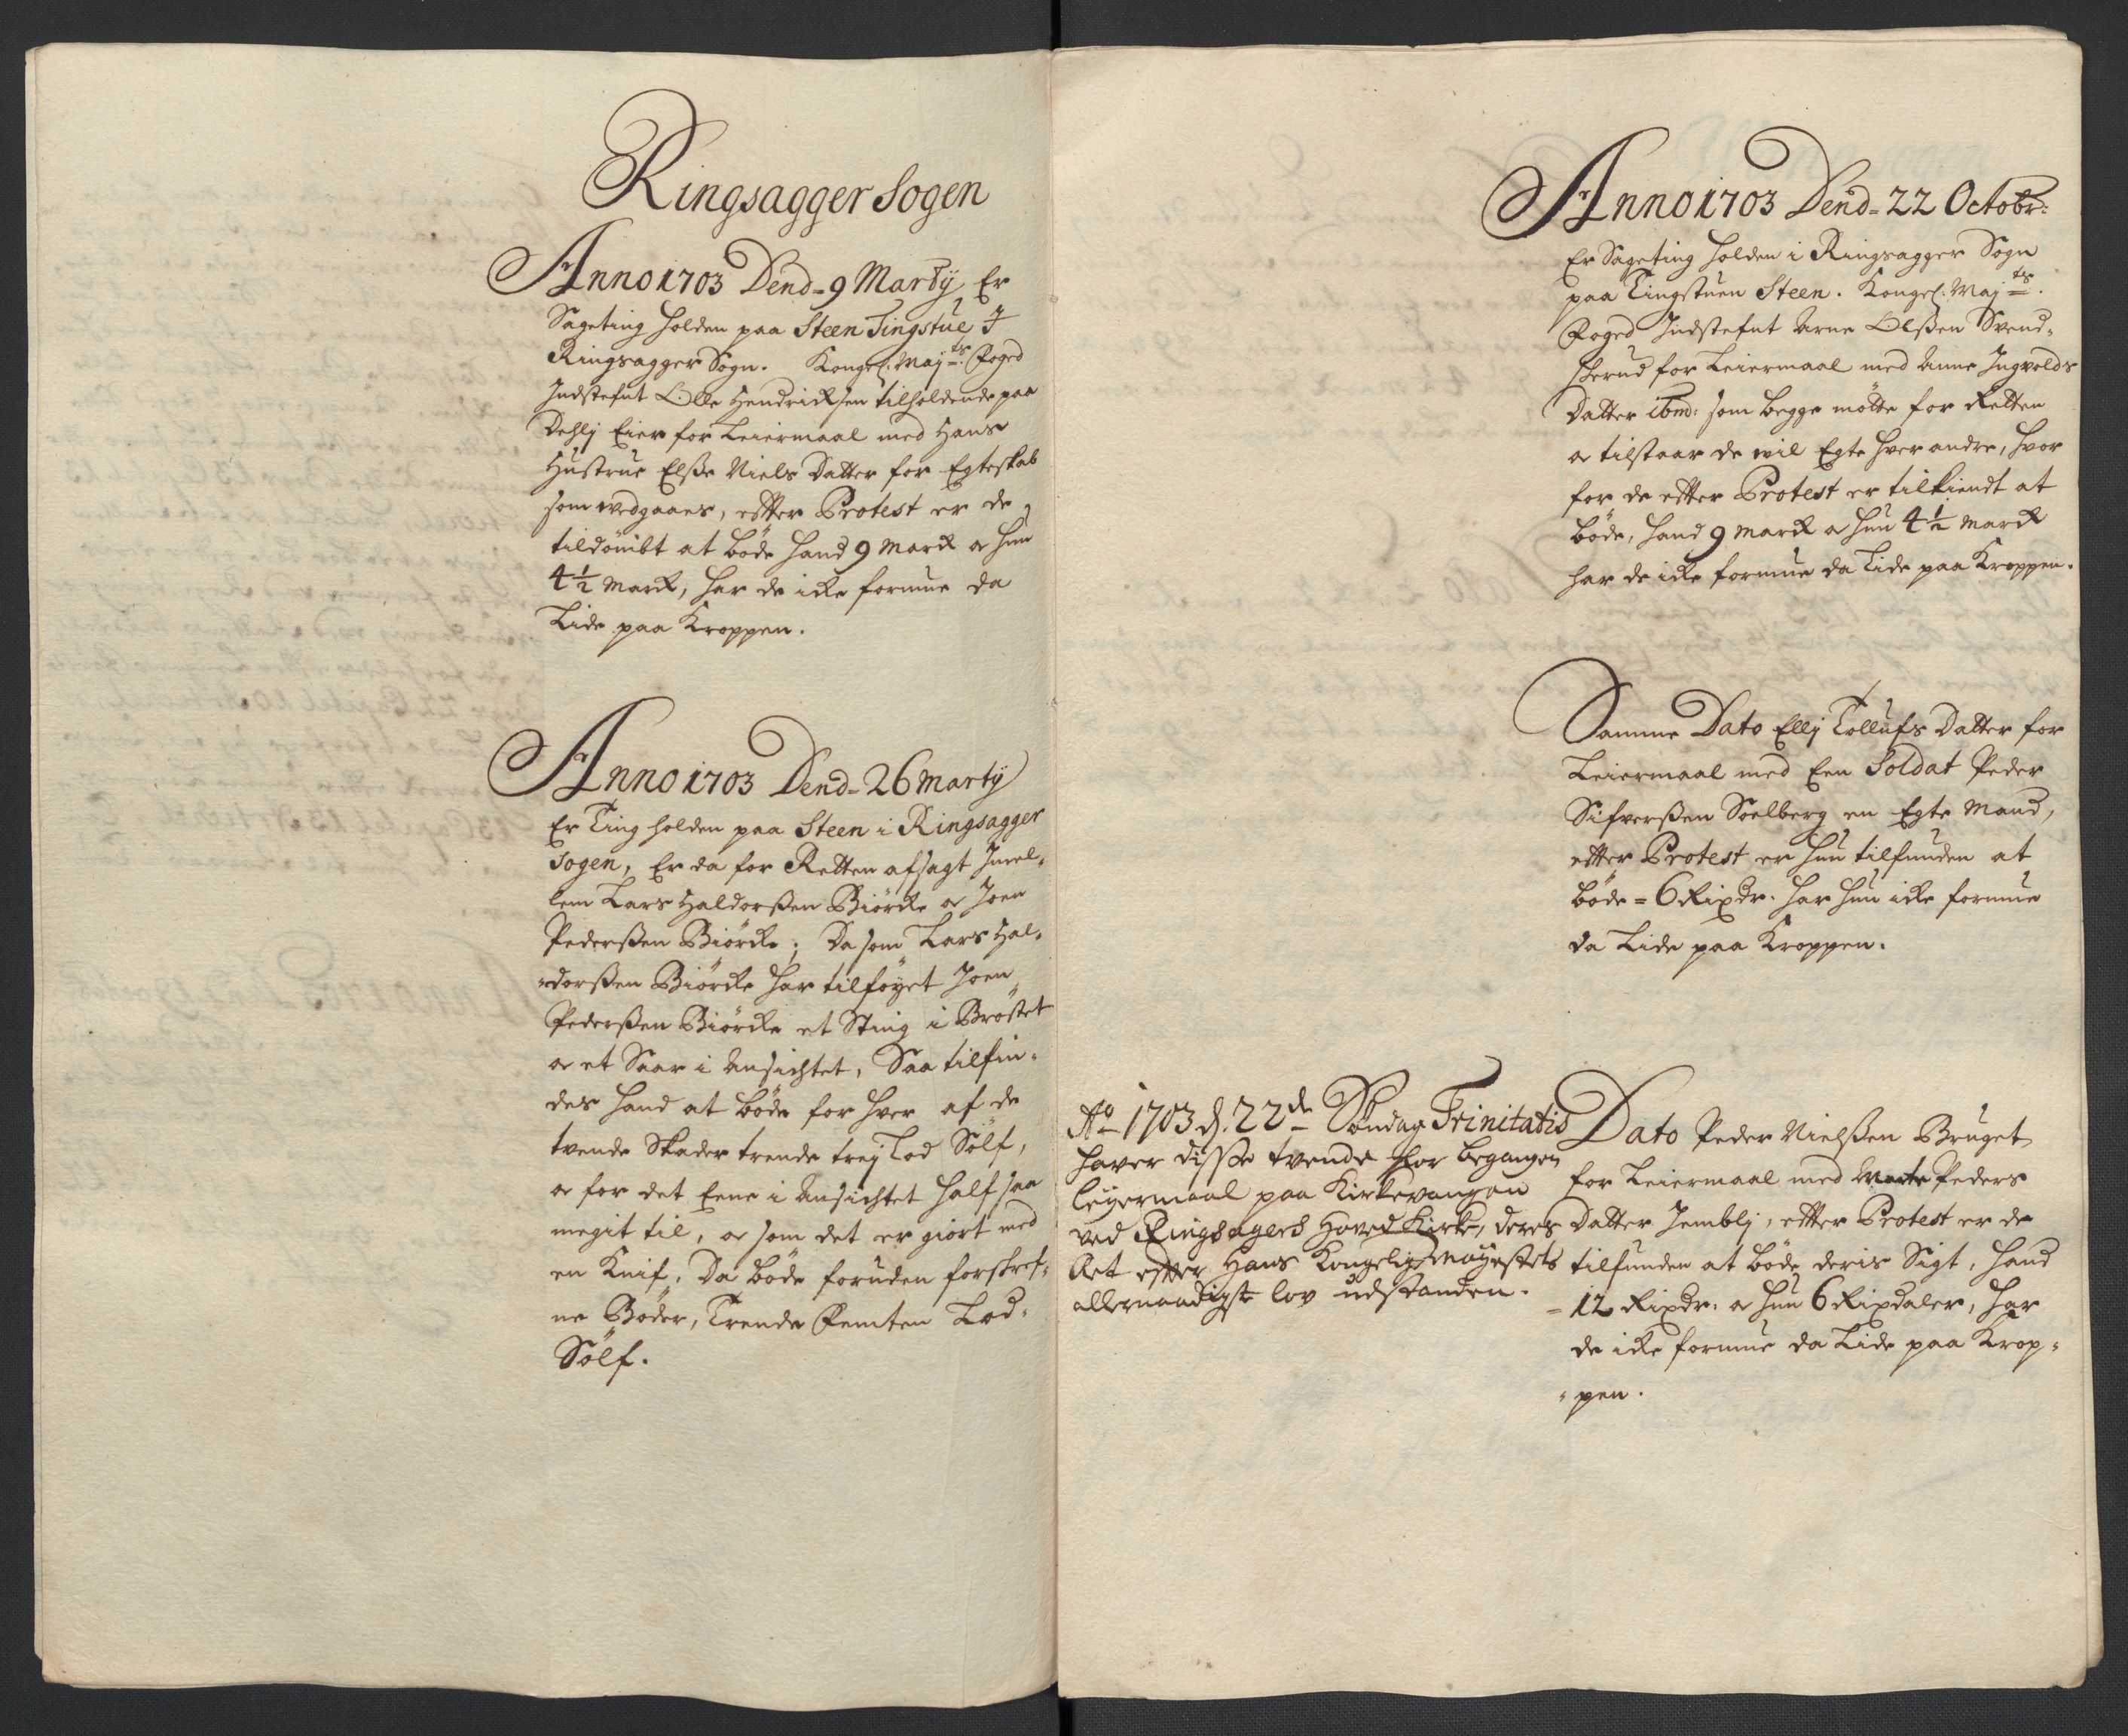 Ringsagger Sogen
Anno 1703 Dend = 9 Marty Er
Sageting holden paa Steen Tingstue I
Ringsagger Sogn. Kongel. May ts: Foged
Indstefnt Olle Hendricksen tilholdende paa
Dehlj Eier for Leiermaal med Hans
Hustrue Elsße Niels Datter for Egteskab
som vedgaaes, efter Protest er de
tildömbt at böde hand 9 Marck oc hun
4 1/2 Marck, har de icke formue da
Lide paa Kroppen.
Anno 1703 Dend = 26 Marty
Er Ting holden paa Steen i Ringsagger
Sogen, Er da for Retten afsagt Imel-
lem Lars Haldorßen Biörcke oc Joen
Pederßen Biörcke; Da som Lars Hal-
-dorßen Biörcke har tilföyet Joen
Pederßen Biörcke et Sting i Bröstet
oc et Saar i Ansichtet, Saa tilfin-
des hand at böde for hver af de
tvende Skader trende trej Lod Sölf,
oc for det Eene i Ansichtet half saa
megit til, oc som det er giört med
en Knif, Da böde foruden forskref-
ne Böder, Trende Femten Lod-
Sölf.
Anno 1703 Dend = 22 Octobr:
Er Sageting holden i Ringsagger Sogn
paa Tingstuen Steen. Kongel. May ts.
Foged Indstefnt Arne Olßen Svend-
sherud for Leiermaal med Anne Ingvolds
Datter ibm: som begge mötte for Retten
oc tilstaar de vil Egte hver andre, hvor
for de efter Protest er tilkiendt at
böde, hand 9 Marck oc hun 4 1/2 Marck
har de icke formue da Lide paa Kroppen.
Samme Dato Ellj Tollufs Datter for
Leiermaal med Een Soldat Peder
Sifverßen Soelberg en Egte Mand,
efter Protest er hun tilfunden at
böde = 6 Rixdr. har hun icke formue
da Lide paa Kroppen.
Ao 1703 d. 22de Söndag Trinitatis
haver disße tvende for begangen
leyermaal paa Kirkevangen
ved Ringsagers Hoved Kirke, deres
Ret efter Hans Kongelig Mayestets
allernaadigste lov udstanden.
Dato Peder Nielßen Bruget
for Leiermaal med Marte Peders
Datter Jemblj, efter Protest er de
tilfunden at böde deris Sigt, hand
= 12 Rixdr: oc hun 6 Rixdaler, har
de icke formue da Lide paa Krop-
-pen.